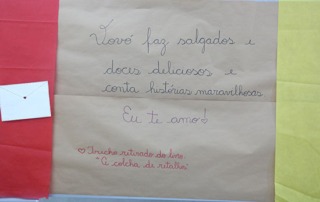 Vovó faz salgados e
doces deliciosos e
conta histórias maravilhosas.
Eu te amo!
Trecho retirado do livro
"A colcha de retalho"